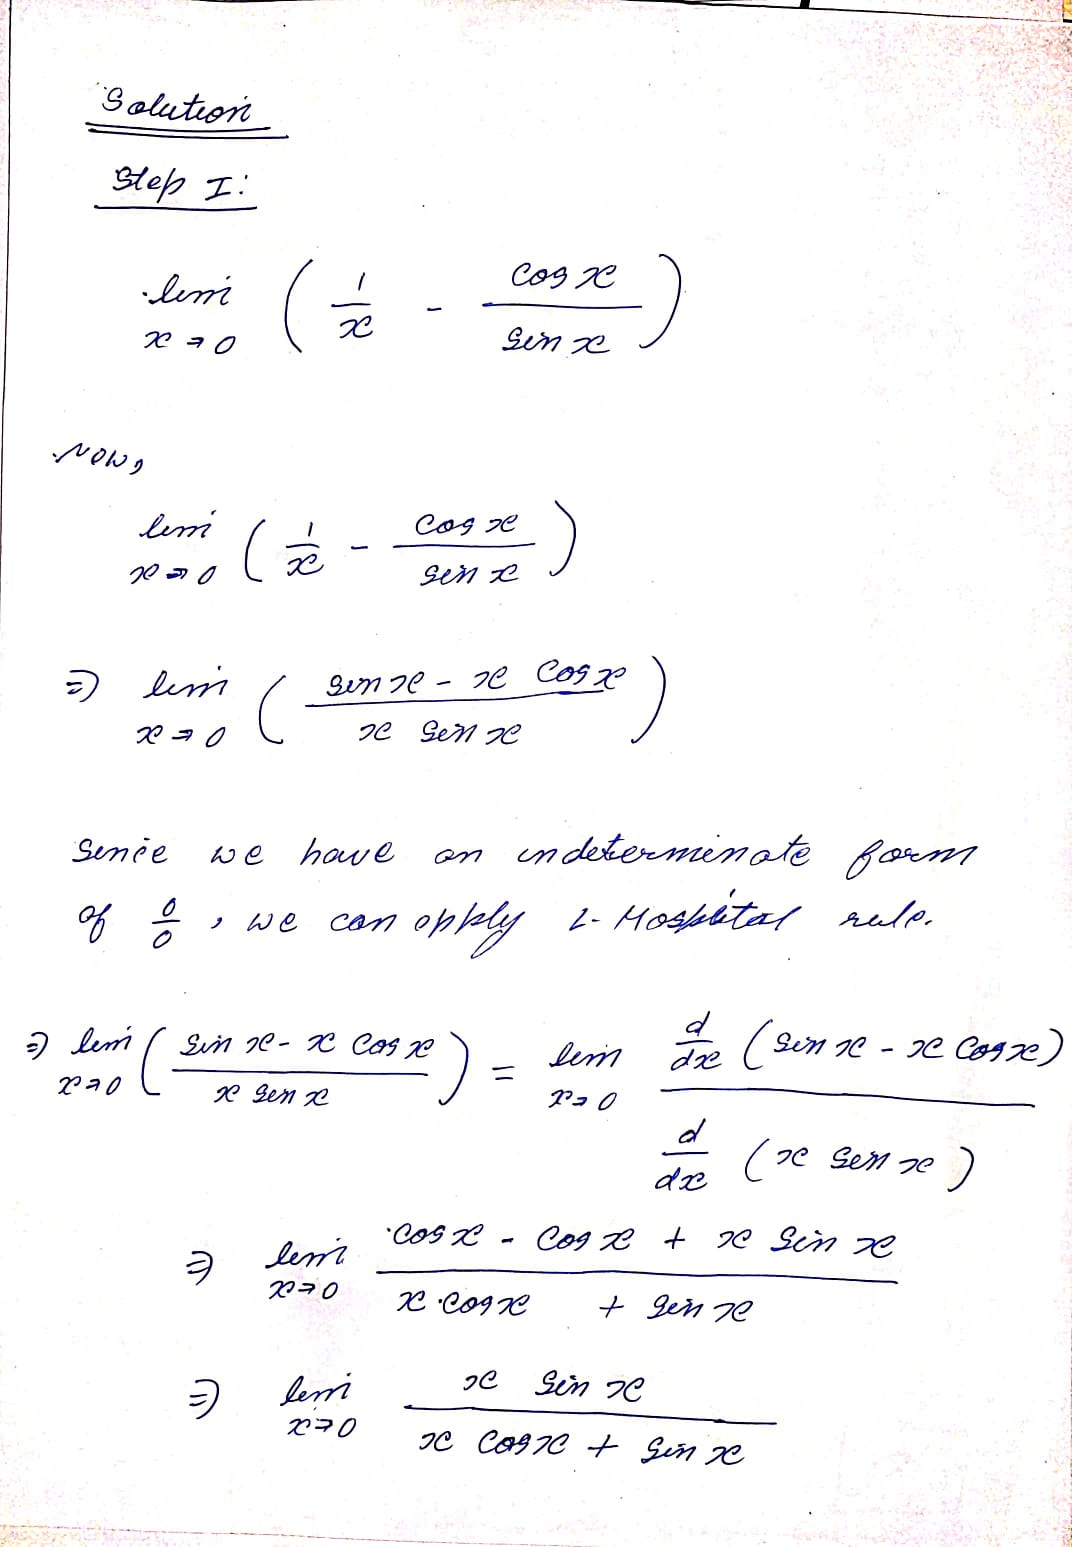 Solution
Step I:
lim x→0 ( 1/x - Cos x / Sin x )
Now,
lim x→0 ( 1/x - Cos x / Sin x )
⇒ lim x→0 ( Sin x - x Cos x / x Sin x )
Since we have an indeterminate form
of 0/0, we can apply L-Hospital rule.
⇒ lim x→0 ( Sin x - x Cos x / x Sin x ) = lim x→0 d/dx ( Sin x - x Cos x ) / d/dx ( x Sin x )
⇒ lim x→0 Cos x - Cos x + x Sin x / x · Cos x + Sin x
⇒ lim x→0 x Sin x / x Cos x + Sin x